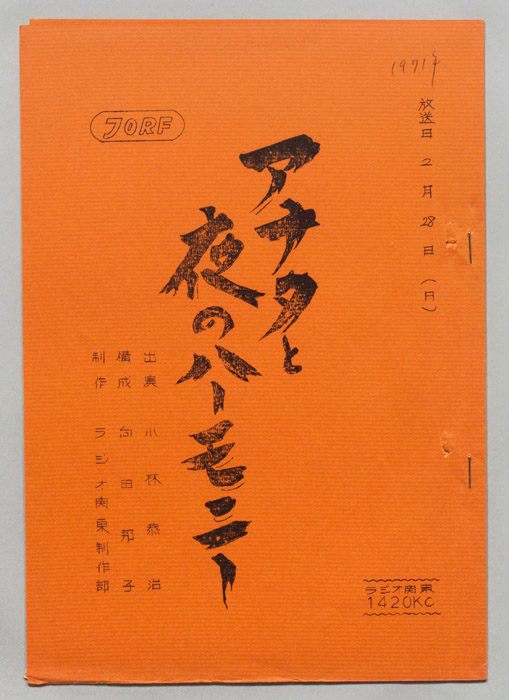 1971年
放送日 2月28日(日)
JORF
アナタと
夜のハーモニー
出演 小林恭治
構成 向田邦子
制作 ラジオ関東制作部
ラジオ関東
1420KC